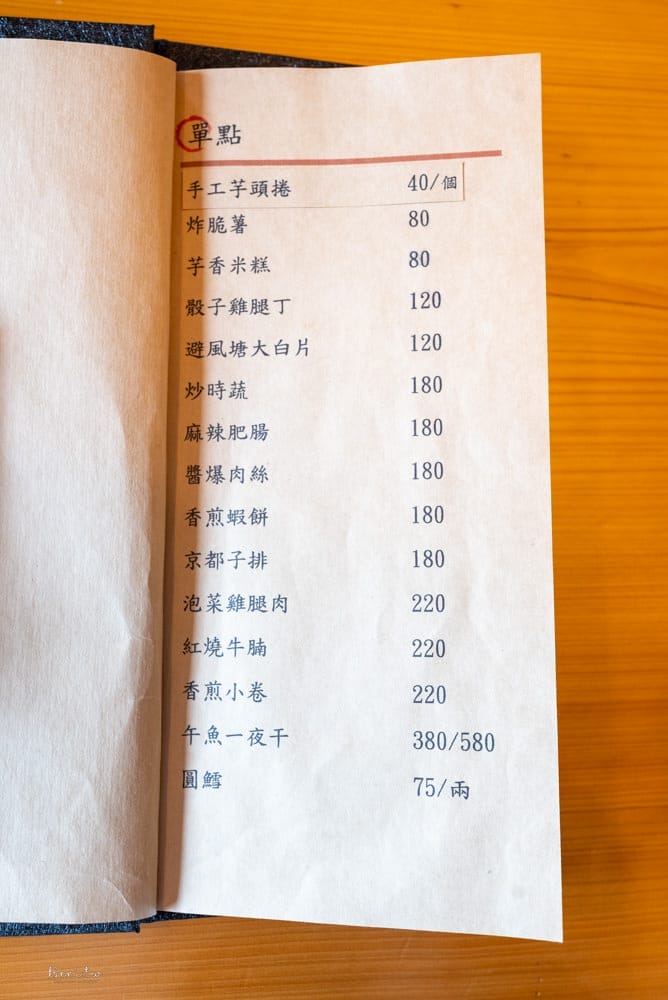 單點
手工芋頭捲 40/個
炸脆薯 80
芋香米糕 80
骰子雞腿丁 120
避風塘大白片 120
炒時蔬 180
麻辣肥腸 180
醬爆肉絲 180
香煎蝦餅 180
京都子排 180
泡菜雞腿肉 220
紅燒牛腩 220
香煎小卷 220
午魚一夜干 380/580
圓鱈 75/兩